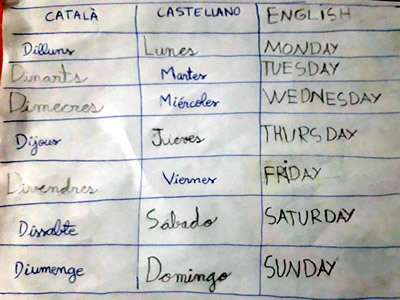 CATALÀ CASTELLANO ENGLISH
Dilluns Lunes MONDAY
Dimarts Martes TUESDAY
Dimecres Miércoles WEDNESDAY
Dijous Jueves THURSDAY
Divendres Viernes FRIDAY
Dissabte Sábado SATURDAY
Diumenge Domingo SUNDAY